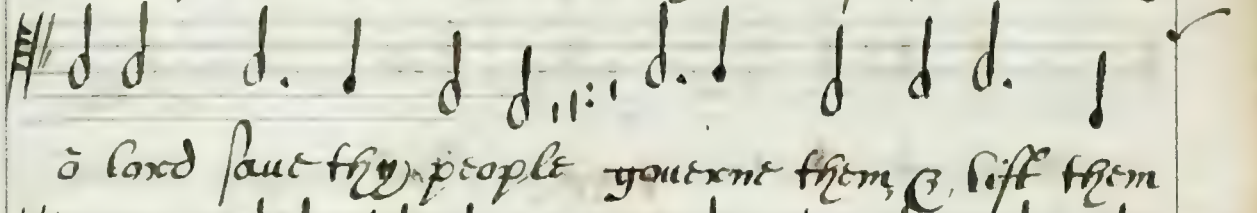 ô lord saue thy people gouerne them, & lift them